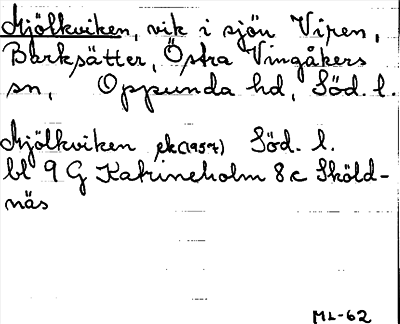 Mjölkviken, vik i sjön Viren,
Barksätter, Östra Vingåkers
sn, Oppunda hd, Söd. l.
Mjölkviken ek (1957) Söd. l.
bl 9 G Katrineholm 8 c Sköld-
näs
ML-62